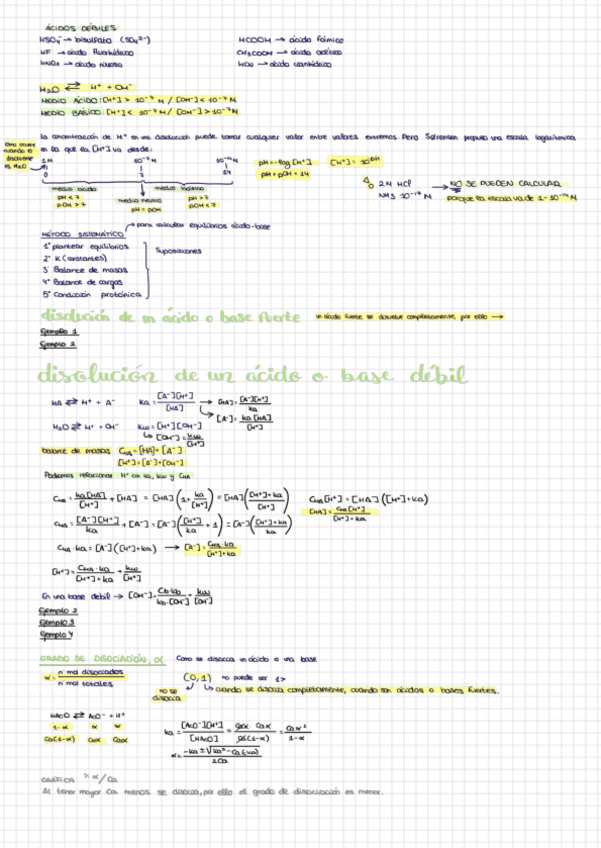 ÁCIDOS DÉBILES
HSO₄⁻ → bisulfato (SO₄²⁻)
HCOOH → ácido fórmico
HF → ácido fluorhídrico
CH₃COOH → ácido acético
HNO₂ → ácido nitroso
HCN → ácido cianhídrico
H₂O ⇄ H⁺ + OH⁻
MEDIO ÁCIDO: [H⁺] > 10⁻⁷ M / [OH⁻] < 10⁻⁷ M
MEDIO BÁSICO: [H⁺] < 10⁻⁷ M / [OH⁻] > 10⁻⁷ M
La concentración de H⁺ en una disolución puede tomar cualquier valor entre valores extremos. Pero Sørensen propuso una escala logarítmica
en la que la [H⁺] va desde:
Esto ocurre
cuando el
disolvente
es H₂O
1M 10⁻⁷M 10⁻¹⁴M
0 7 14
pH = -log [H⁺] [H⁺] = 10
pH + pOH = 14
medio ácido
pH < 7
pOH > 7
medio neutro
pH = pOH
medio básico
pH > 7
pOH < 7
2M HCl
NH₃ 10 M
NO SE PUEDEN CALCULAR
porque la escala va de 1 - 10⁻¹⁴ M
MÉTODO SISTEMÁTICO → para calcular equilibrios ácido-base
1º plantear equilibrios
2º K (constantes)
3º Balance de masas
4º Balance de cargas
5º Condición protónica
Suposiciones
disolución de un ácido o base fuerte
un ácido fuerte se disuelve completamente, por ello →
Ejemplo 1
Ejemplo 2
disolución de un ácido o base débil
HA ⇄ H⁺ + A⁻ Ka = [A⁻][H⁺] / [HA] → [HA] = [A⁻][H⁺] / Ka
[A⁻] = Ka[HA] / [H⁺]
H₂O ⇄ H⁺ + OH⁻ Kw = [H⁺][OH⁻]
↳ [OH⁻] = Kw / [H⁺]
balance de masas C_HA = [HA] + [A⁻]
[H⁺] = [A⁻] + [OH⁻]
Podemos relacionar H⁺ con Ka, Kw y C_HA
C_HA = Ka[HA] / [H⁺] + [HA] = [HA] (1 + Ka / [H⁺]) = [HA] ([H⁺] + Ka / [H⁺]) C_HA[H⁺] = [HA] ([H⁺] + Ka)
[HA] = C_HA[H⁺] / [H⁺] + Ka
C_HA = [A⁻][H⁺] / Ka + [A⁻] = [A⁻] ([H⁺] / Ka + 1) = [A⁻] ([H⁺] + Ka / Ka)
C_HA · Ka = [A⁻] ([H⁺] + Ka) → [A⁻] = C_HA · Ka / [H⁺] + Ka
[H⁺] = C_HA · Ka / [H⁺] + Ka + Kw / [H⁺]
En una base débil → [OH⁻] = Cb · Kb / Kb · [OH⁻] + Kw / [OH⁻]
Ejemplo 2
Ejemplo 3
Ejemplo 4
GRADO DE DISOCIACIÓN, α Como se disocia un ácido o una base
α = nº mol disociados / nº mol totales
(0,1) no puede ser 1>
no se
disocia
↳ cuando se disocia completamente, cuando son ácidos o bases fuertes.
HAcO ⇄ AcO⁻ + H⁺
1-α α α
Ca(1-α) Caα Caα
Ka = [AcO⁻][H⁺] / [HAcO] = Caα · Caα / Ca(1-α) = Caα² / 1-α
α = -Ka ± √Ka² - Ca(4Ka) / 2Ca
GRÁFICA α/Ca
Al tener mayor Ca menos se disocia, por ello el grado de disociación es menor.